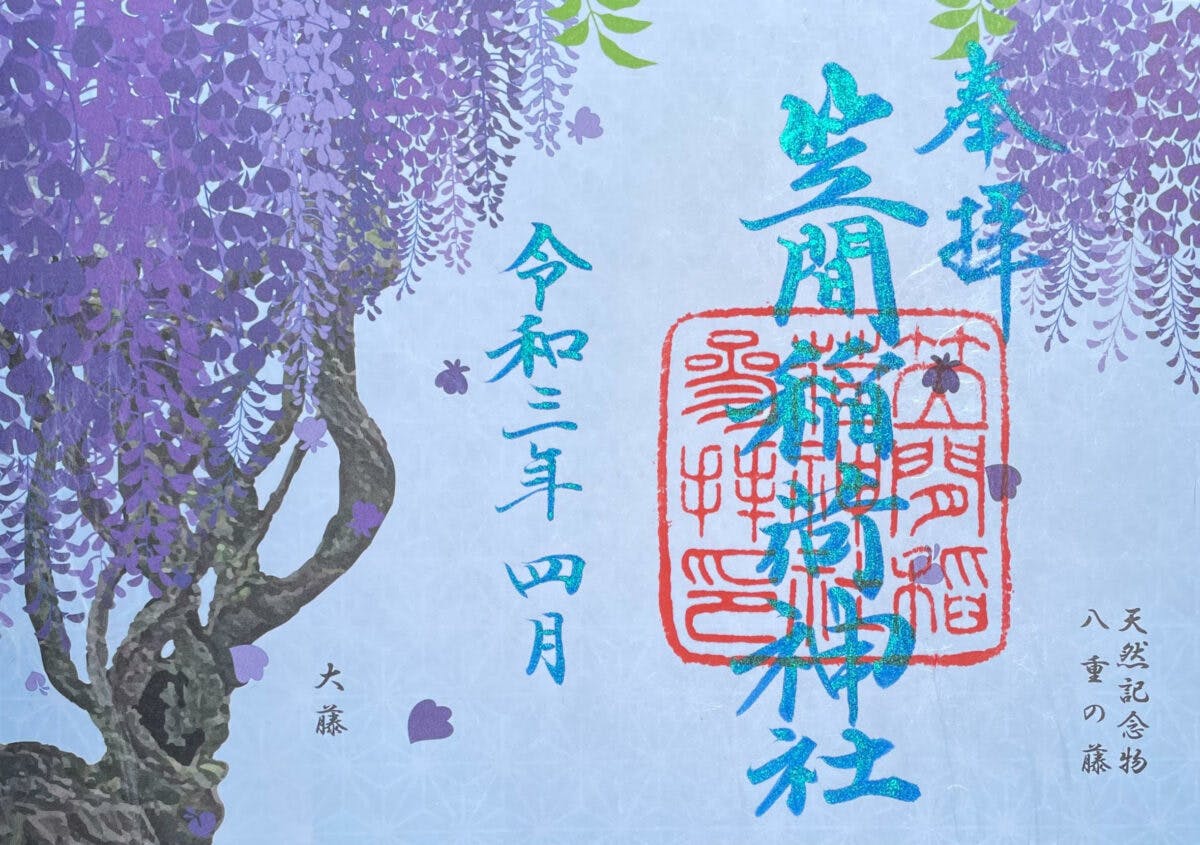 奉拝
笠間稲荷神社
笠間稲
荷神社
参拝印
天然記念物
八重の藤
令和三年 四月
大藤